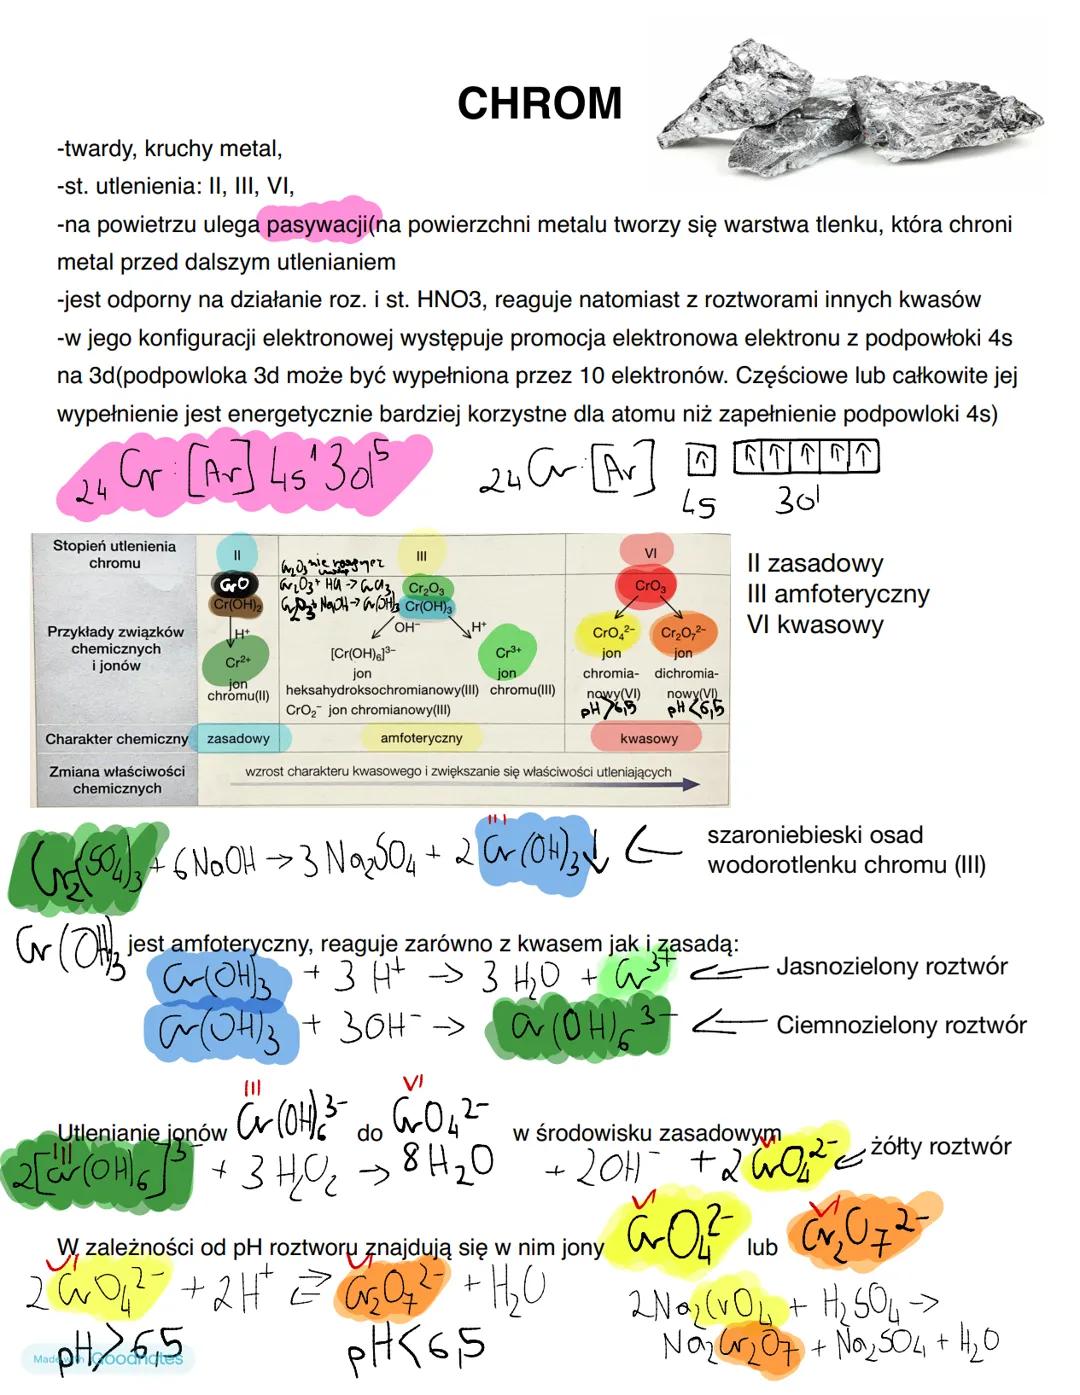 CHROM
-twardy, kruchy metal,
-st. utlenienia: II, III, VI,
-na powietrzu ulega pasywacji(na powierzchni metalu tworzy się warstwa tlenku, która chroni
metal przed dalszym utlenianiem
-jest odporny na działanie roz. i st. HNO3, reaguje natomiast z roztworami innych kwasów
-w jego konfiguracji elektronowej występuje promocja elektronowa elektronu z podpowłoki 4s
na 3d(podpowloka 3d może być wypełniona przez 10 elektronów. Częściowe lub całkowite jej
wypełnienie jest energetycznie bardziej korzystne dla atomu niż zapełnienie podpowloki 4s)
₂₄Cr:[Ar] 4s¹3d⁵
₂₄Cr:[Ar] ↑ ↑ ↑ ↑ ↑ ↑
4s 3d
Stopień utlenienia chromu II III VI
Cr₂O₃ nie reaguje z wodą
Cr₂O₃ + HCl → CrCl₃
Cr₂O₃ + NaOH → Cr(OH)₃
Przykłady związków chemicznych i jonów
CrO
Cr(OH)₂
H⁺
Cr²⁺
jon
chromu(II)
Cr₂O₃
Cr(OH)₃
OH⁻ H⁺
[Cr(OH)₆]³⁻ Cr³⁺
jon jon
heksahydroksochromianowy(III) chromu(III)
CrO₂⁻ jon chromianowy(III)
CrO₃
CrO₄²⁻ Cr₂O₇²⁻
jon jon
chromia- dichromia-
nowy(VI) nowy(VI)
pH>6,5 pH<6,5
Charakter chemiczny zasadowy amfoteryczny kwasowy
Zmiana właściwości chemicznych wzrost charakteru kwasowego i zwiększanie się właściwości utleniających
II zasadowy
III amfoteryczny
VI kwasowy
Cr₂(SO₄)₃ + 6NaOH → 3Na₂SO₄ + 2Cr(OH)₃↓ ←
III
szaroniebieski osad
wodorotlenku chromu (III)
Cr(OH)₃ jest amfoteryczny, reaguje zarówno z kwasem jak i zasadą:
Cr(OH)₃ + 3H⁺ → 3H₂O + Cr³⁺ ← Jasnozielony roztwór
Cr(OH)₃ + 3OH⁻ → Cr(OH)₆³⁻ ← Ciemnozielony roztwór
III VI
Utlenianie jonów Cr(OH)₆³⁻ do CrO₄²⁻ w środowisku zasadowym
III
2[Cr(OH)₆]³⁻ + 3H₂O₂ → 8H₂O + 2OH⁻ + 2CrO₄²⁻ ← żółty roztwór
VI VI
W zależności od pH roztworu znajdują się w nim jony CrO₄²⁻ lub Cr₂O₇²⁻
VI VI
2CrO₄²⁻ + 2H⁺ ⇄ Cr₂O₇²⁻ + H₂O
pH>6,5 pH<6,5
2Na₂CrO₄ + H₂SO₄ →
Na₂Cr₂O₇ + Na₂SO₄ + H₂O
Made with Goodnotes